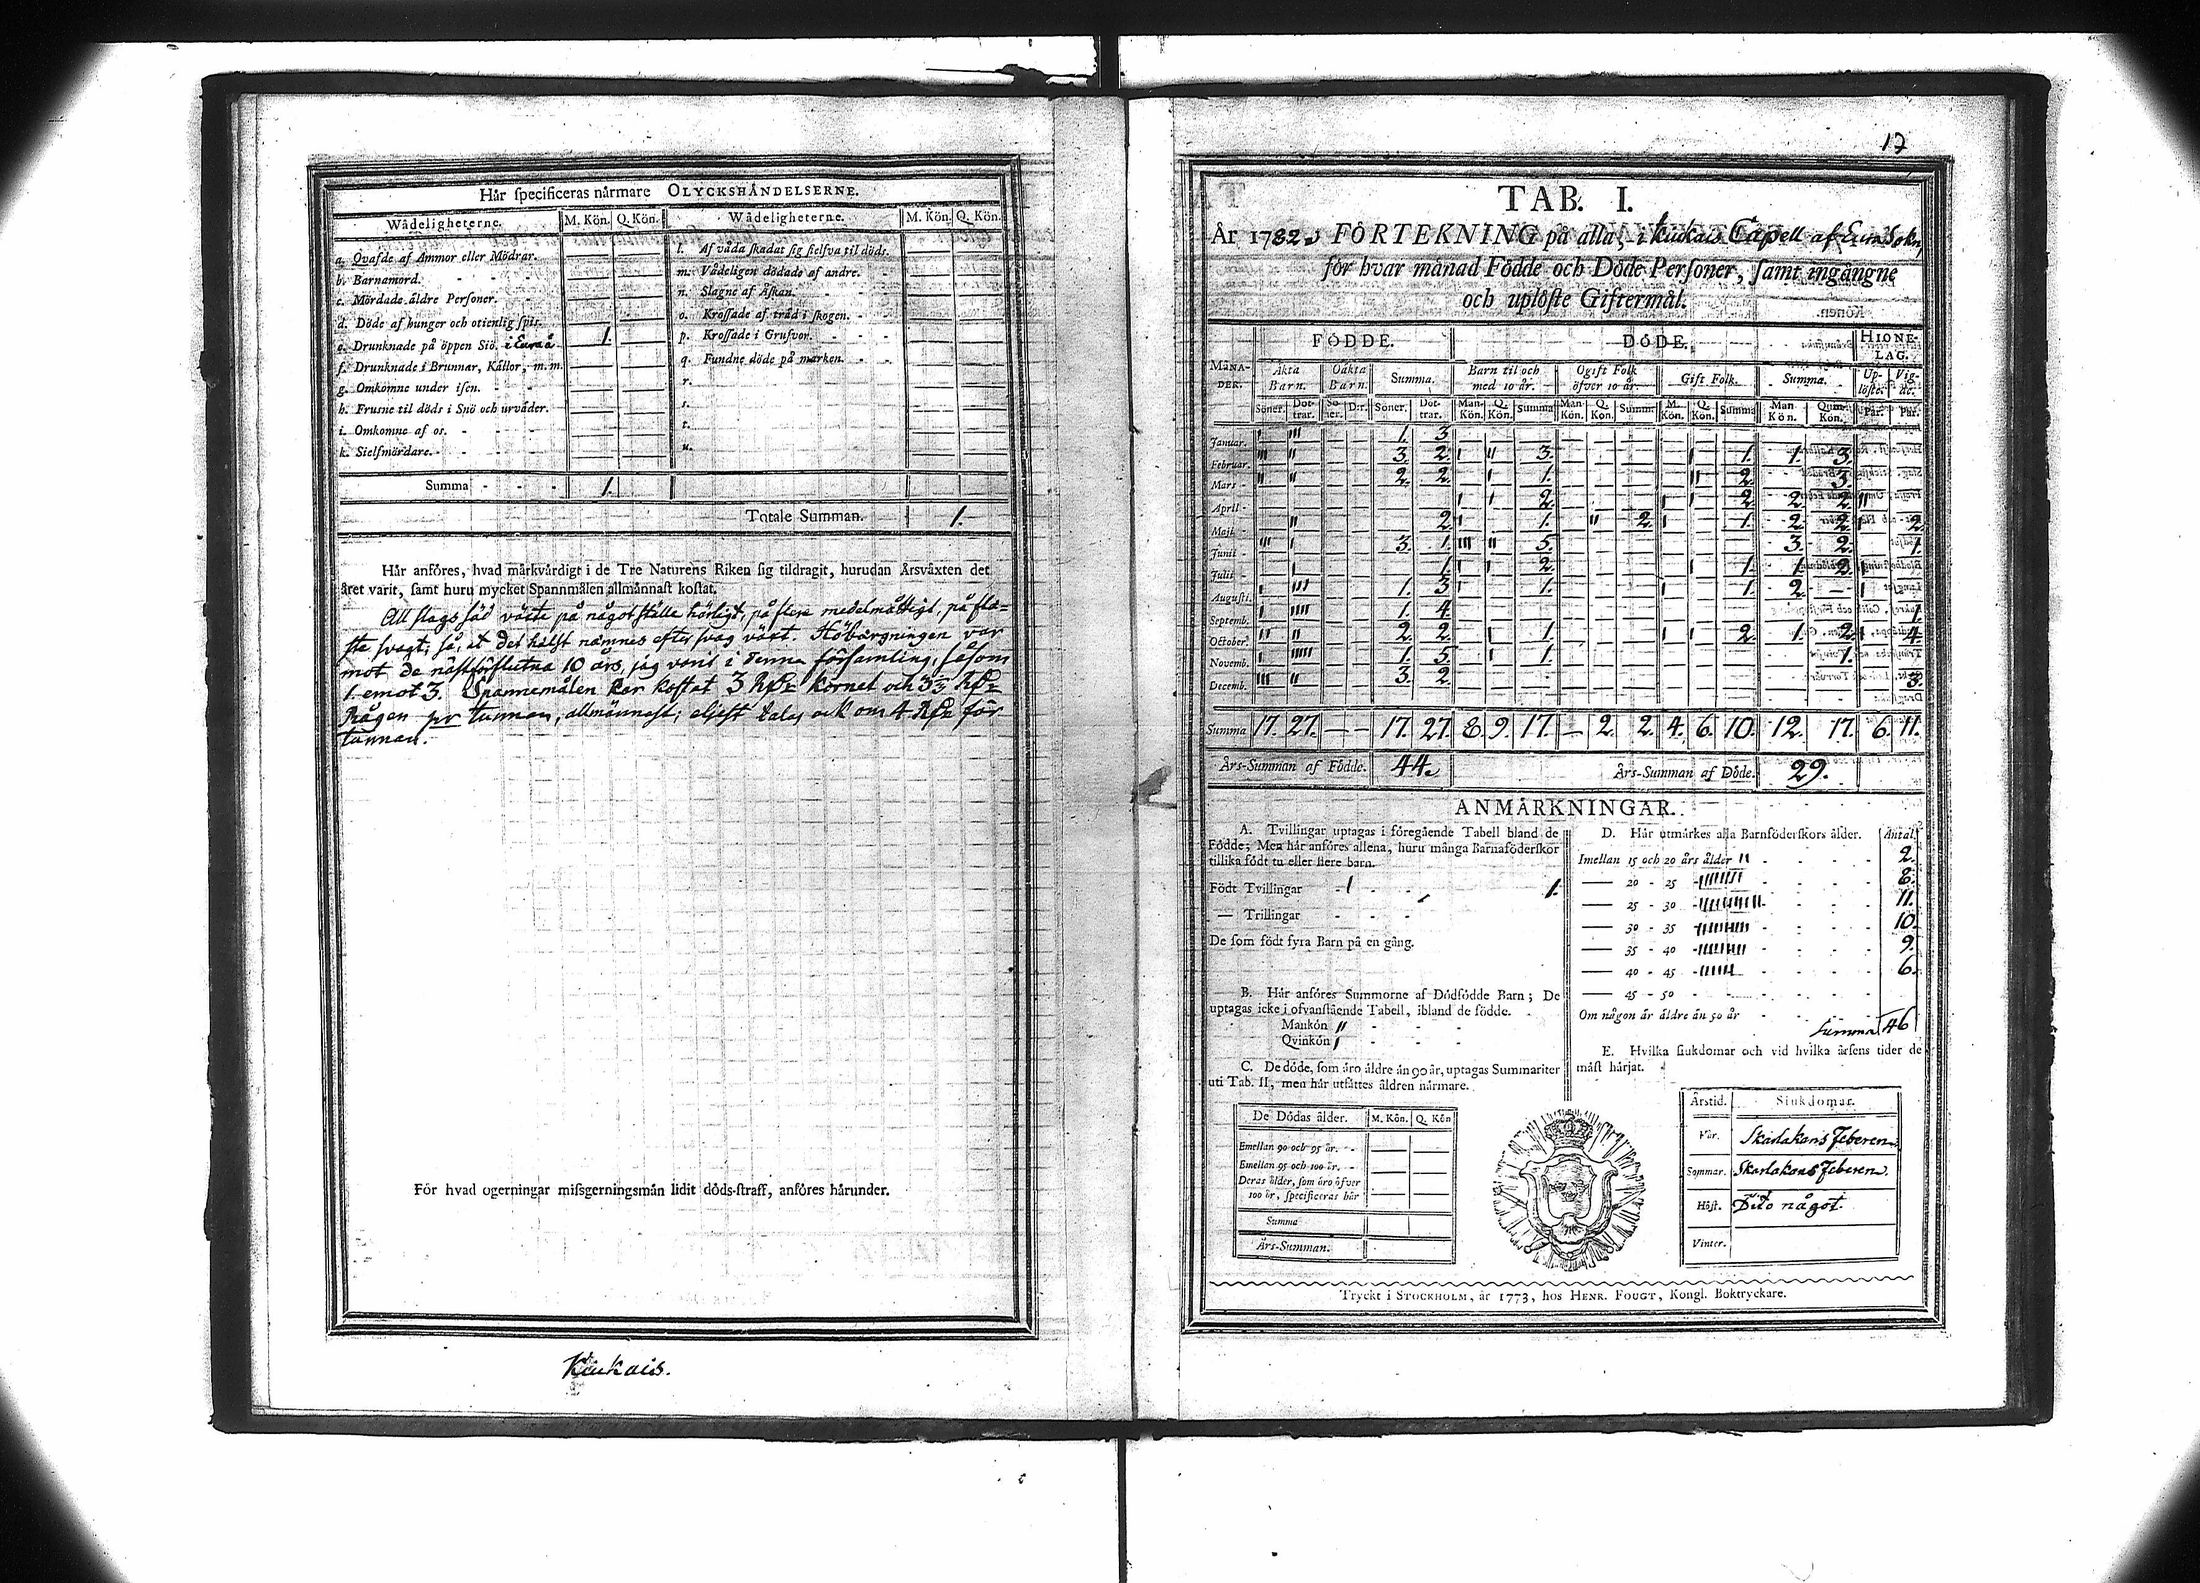 Här specificeras närmare OLYCKSHÄNDELSERNE.
Wådeligheterne. M. Kön. Q. Kön. Wådeligheterne. M. Kön. Q. Kön.
a. Qvafde af Ammor eller Mödrar.
b. Barnamord.
c. Mördade äldre Personer.
d. Döde af hunger och otienlig spis.
e. Drunknade på öppen Siö. i Eurå 1.
f. Drunknade i Brunnar, Källor, m. m.
g. Omkomne under isen.
h. Frusne til döds i Snö och urväder.
i. Omkomne af os.
k. Sielfmördare.
l. Af våda skadat sig sielfva til döds.
m. Vådeligen dödade af andre.
n. Slagne af Åskan.
o. Krossade af träd i skogen.
p. Krossade i Grufvor.
q. Fundne döde på marken.
r.
s.
t.
u.
Summa 1.
Totale Summan. 1.
Här anföres, hvad märkvärdigt i de Tre Naturens Riken sig tildragit, hurudan Årsväxten det
året varit, samt huru mycket Spannmålen allmännast kostat.
All slags säd växte på något ställe härligt, på flere medelmåttigt, på flä-
ste svagt; så, at det hälst nämnes efter svag växt. Höbärgningen var
mot de nästförflutna 10 års, jag varit i denna församling, såsom
1 emot 3. Spannemålen har kostat 3 Rdr kornet och 3⅓ Rdr
Rågen pr tunnan, allmännast; eljest talas ock om 4 Rdr för
tunnan.
För hvad ogerningar missgerningsmän lidit döds-straff, anföres härunder.
Kiukais.
17
TAB. I.
År 1782. FÖRTEKNING på alla, i Kiukais Capell af Eura Sokn,
för hvar månad Födde och Döde Personer, samt ingångne
och uplöste Giftermål.
FÖDDE. DÖDE. HIONE-LAG.
MÅNA-DER. Äkta Barn. Oäkta Barn. Summa. Barn til och med 10 år. Ogift Folk öfver 10 år. Gift Folk. Summa. Up-löste. Vig-de.
Söner. Döt-trar. So-ner. D:r. Söner. Döt-trar. Man-Kön. Q. Kön. Summa Man-Kön. Q. Kön. Summa M. Kön. Q. Kön. Summa Man Kön. Quin-Kön. Par. Par.
Januar. 1. 3.
Februar. 3. 2. 3. 1. 1. 3.
Mars 2. 2. 1. 2. 3.
April 2. 2. 2. 2.
Maji 2. 1. 2. 1. 2. 2. 2.
Junii 3. 1. 5. 3. 2. 1.
Julii 1. 2. 1. 1. 2.
Augusti. 1. 3. 1. 1. 2. —
Septemb. 1. 4. 1.
October. 2. 2. 1. 2. 1. 2. 4.
Novemb. 1. 5. 1. 1.
Decemb. 3. 2. 3.
Summa 17. 27. — — 17. 27. 8. 9. 17. — 2. 2. 4. 6. 10. 12. 17. 6. 11.
Års-Summan af Födde. 44. Års-Summan af Döde. 29.
ANMÄRKNINGAR.
A. Tvillingar uptagas i föregående Tabell bland de
Födde; Men här anföres allena, huru många Barnaföderskor
tillika födt tu eller flere barn.
Födt Tvillingar 1 1.
— Trillingar
De som födt fyra Barn på en gång.
B. Här anföres Summorne af Dödfödde Barn; De
uptagas icke i ofvanstående Tabell, ibland de födde.
Mankön
Qvinkön
C. De döde, som äro äldre än 90 år, uptagas Summariter
uti Tab. II, men här utsättes åldren närmare.
De Dödas ålder. M. Kön. Q. Kön
Emellan 90 och 95 år.
Emellan 95 och 100 år.
Deras ålder, som äro öfver
100 år, specificeras här
Summa
Års-Summan.
D. Här utmärkes alla Barnföderskors ålder. Antal.
Imellan 15 och 20 års ålder 2.
20 - 25 8.
25 - 30 11.
30 - 35 10.
35 - 40 9.
40 - 45 6.
45 - 50
Om någon är äldre än 50 år
Summa 46
E. Hvilka siukdomar och vid hvilka årsens tider de
mäst härjat.
Årstid. Siukdomar.
Vår. Skarlakans Feberen
Sommar. Skarlakans Feberen.
Höst. Dito något.
Vinter.
Tryckt i STOCKHOLM, år 1773, hos HENR. FOUGT, Kongl. Boktryckare.